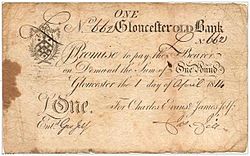 ONE
No. 662 Gloucester OLD Bank
No. 662
I Promise to pay the Bearer
on Demand the Sum of One Pound
Gloucester the 1 day of April 1814
£ One. For Charles Evans & James Jelf
Entd. Geo Jelf